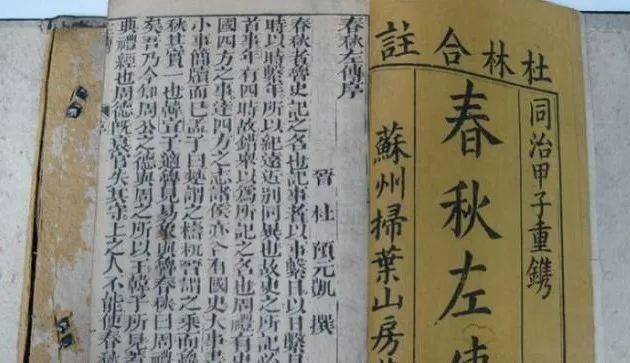 杜林合註
同治甲子重鐫
春秋左傳
蘇州掃葉山房
春秋左傳序
晉杜預元凱撰
春秋者魯史記之名也記事者以事繫日以日繫
時以時繫年所以紀遠近別同異也故史之所記必
首事年有四時故錯舉以為所記之名也周禮有史
國四方之事達四方之志諸侯亦各有國史大事書
小事簡牘而已孟子曰楚謂之檮杌晉謂之乘而魯
秋其實一也韓宣子適魯見易象與魯春秋曰周禮
矣吾乃今知周公之德與周之所以王韓子所見蓋
典禮經也周德既衰官失其守上之人不能使春秋